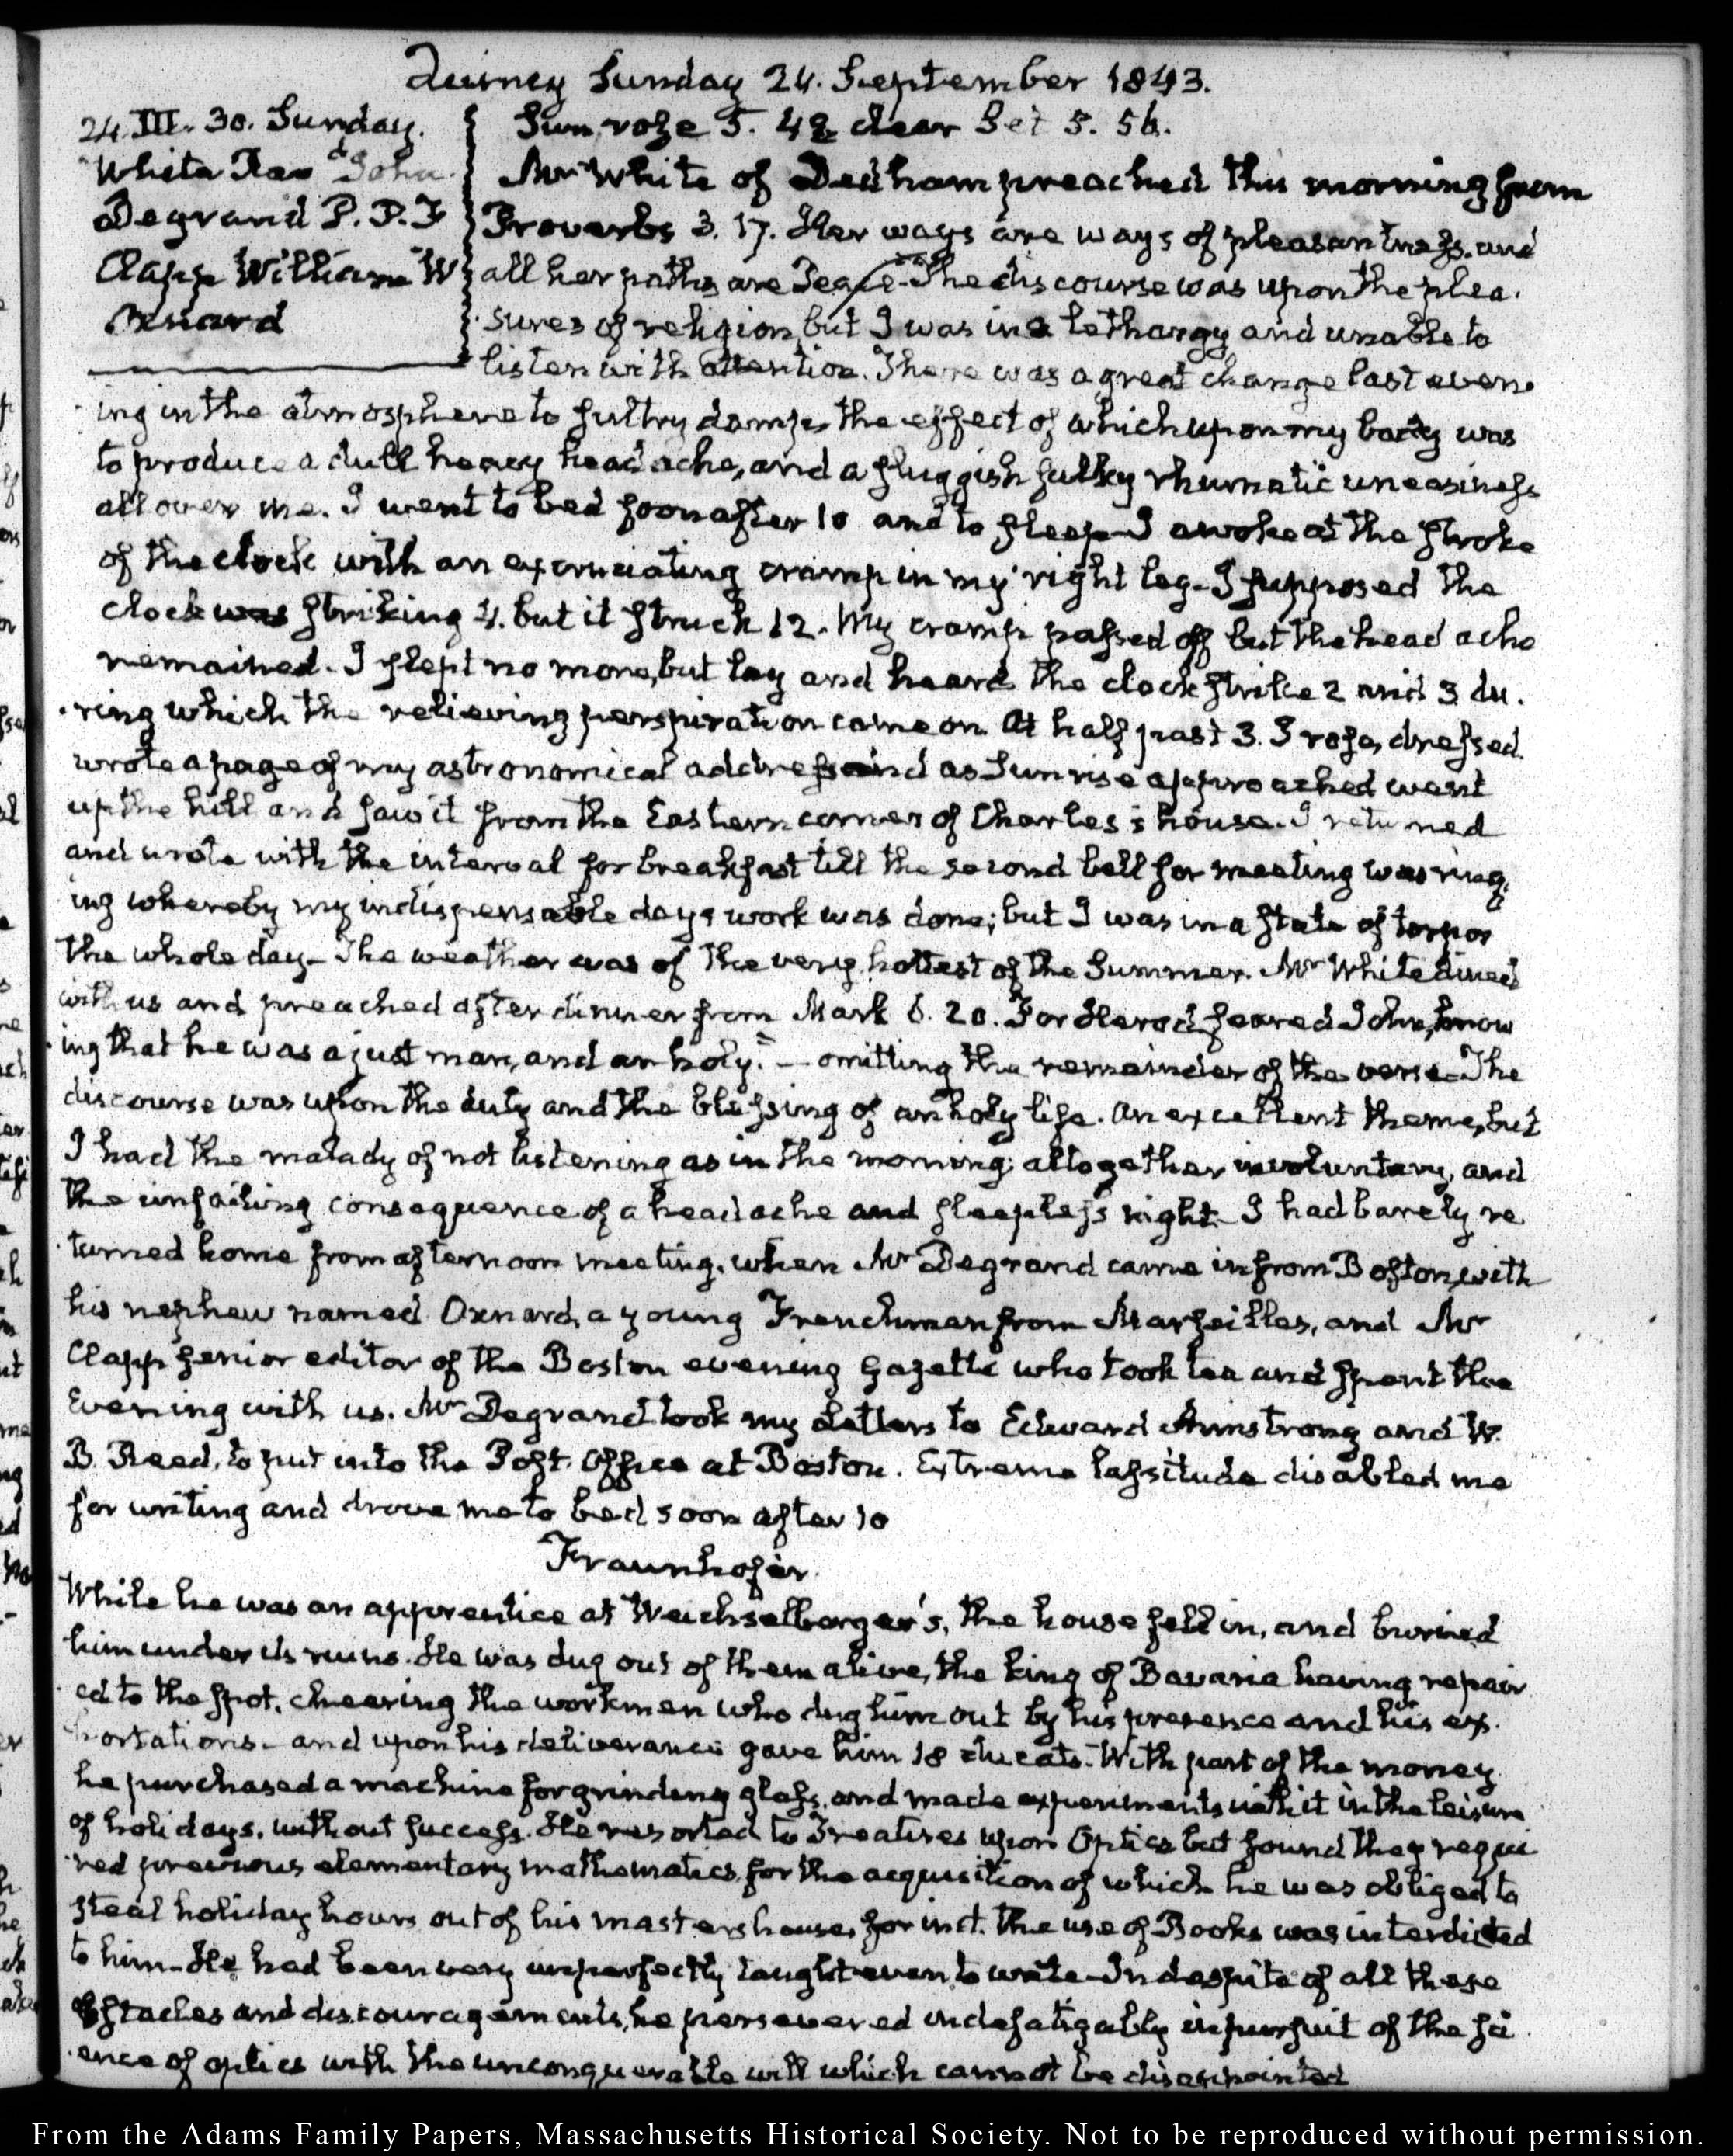 Quincy Sunday 24. September 1843.
24. III. 30. Sunday.
White Rev.d John
Degrand P. P. F
Clapp William W
Oxnard
Sun rose 5. 48 clear Set 5. 56.
Mr White of Dedham preached this morning from
Proverbs 3. 17. Her ways are ways of pleasantness. and
all her paths are Peace. The discourse was upon the plea-
sures of religion, but I was in a lethargy and unable to
listen with attention. There was a great change last even-
ing in the atmosphere to sultry damp, the effect of which upon my body was
to produce a dull heavy head ache, and a sluggish sulky rhumatic uneasiness
all over me. I went to bed soon after 10 and to sleep I awoke at the stroke
of the clock with an excruciating cramp in my right leg- I supposed the
clock was striking 4. but it struck 12. My cramp passed off but the head ache
remained. I slept no more, but lay and heard the clock strike 2 and 3 du-
ring which the relieving perspiration came on. At half past 3. I rose, dressed.
wrote a page of my astronomical address and as Sunrise approached went
up the hill and saw it from the Eastern corner of Charles's house. I returned
and wrote with the interval for breakfast till the second bell for meeting was ring
ing whereby my indispensable days work was done; but I was in a state of torpor
the whole day- The weather was of the very hottest of the Summer. Mr White dined
with us and preached after dinner from Mark 6. 20. For Herod feared John, know
ing that he was a just man, and an holy." — omitting the remainder of the verse- The
discourse was upon the duty and the blessing of an holy life. an excellent theme, but
I had the malady of not listening as in the morning; altogether involuntary, and
the unfailing consequence of a headache and sleepless night- I had barely re
turned home from afternoon meeting. when Mr Degrand came in from Boston, with
his nephew named Oxnard, a young Frenchman from Marseilles, and Mr
Clapp senior editor of the Boston evening Gazette who took tea and spent the
Evening with us. Mr Degrand took my letters to Edward Armstrong and W.
B. Reed, to put into the Post-Office at Boston. Extreme lassitude disabled me
for writing and drove me to bed soon after 10
Fraunhofer.
While he was an apprentice at Weichselberger's, the house fell in, and buried
him under its ruins. He was dug out of them alive, the king of Bavaria having repair
ed to the spot, cheering the workmen who dug him out by his presence and his ex-
hortations- and upon his deliverance gave him 18 ducats. With part of the money
he purchased a machine for grinding glass, and made experiments with it in the leisure
of holidays, without success. He resorted to Treatises upon Optics but found they requi
red previous elementary mathematics, for the acquisition of which he was obliged to
steal holiday hours out of his masters house, for in it. the use of Books was interdicted
to him- He had been very imperfectly taught even to write- In despite of all these
obstacles and discouragements, he persevered indefatigably in pursuit of the sci
ence of optics with the unconquerable will which cannot be disappointed
From the Adams Family Papers, Massachusetts Historical Society. Not to be reproduced without permission.